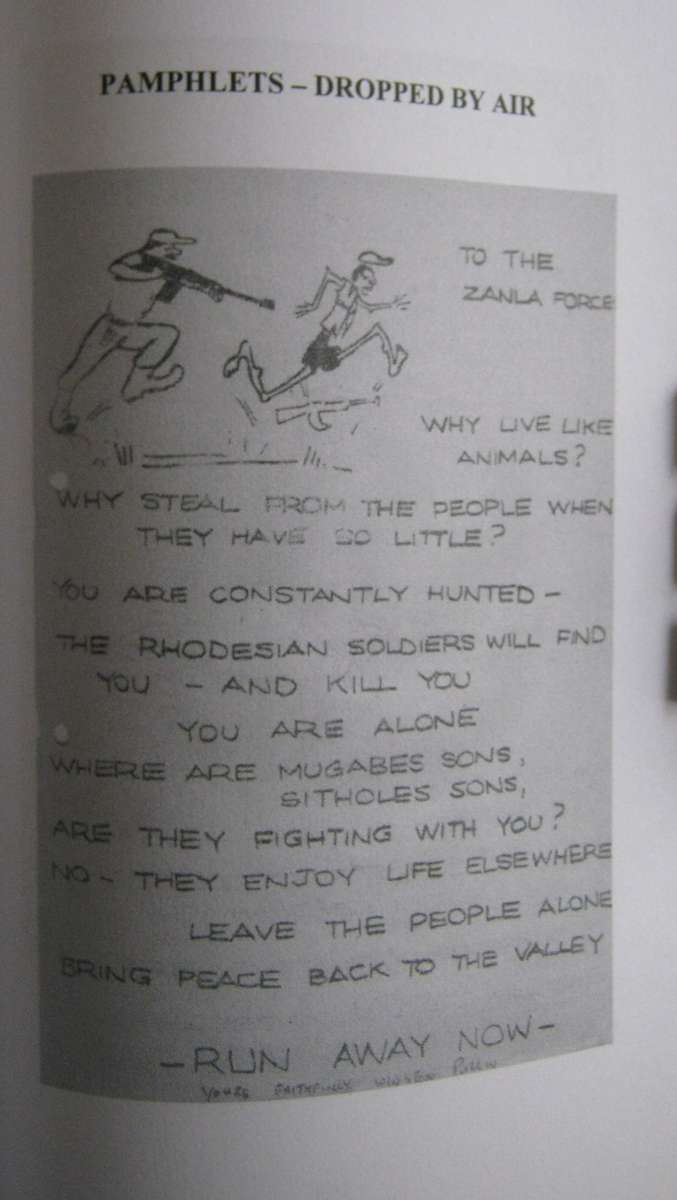 PAMPHLETS – DROPPED BY AIR
TO THE
ZANLA FORCE
WHY LIVE LIKE
ANIMALS?
WHY STEAL FROM THE PEOPLE WHEN
THEY HAVE SO LITTLE?
YOU ARE CONSTANTLY HUNTED –
THE RHODESIAN SOLDIERS WILL FIND
YOU – AND KILL YOU
YOU ARE ALONE
WHERE ARE MUGABES SONS,
SITHOLES SONS,
ARE THEY FIGHTING WITH YOU?
NO – THEY ENJOY LIFE ELSEWHERE
LEAVE THE PEOPLE ALONE
BRING PEACE BACK TO THE VALLEY
– RUN AWAY NOW –
YOURS FAITHFULLY